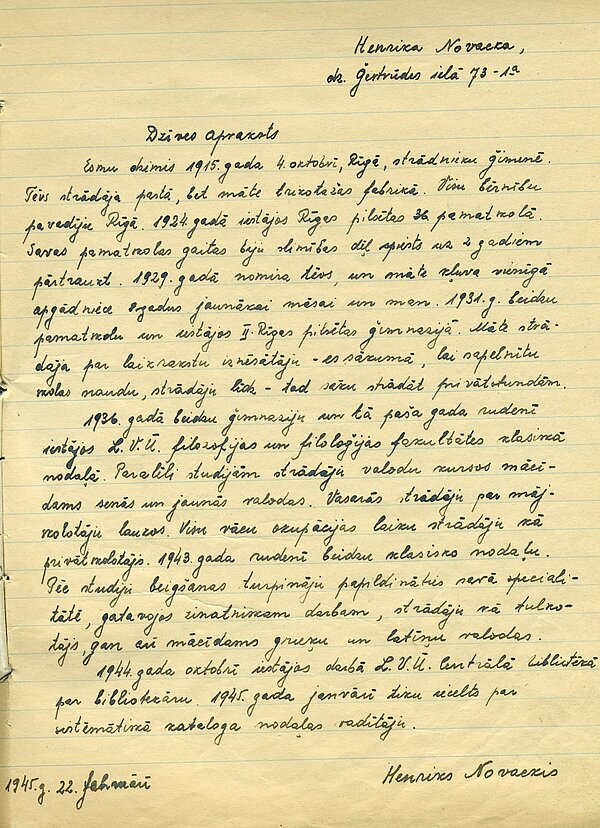 Henrika Novacka,
dz. Ģertrūdes ielā 73-1a
Dzīves apraksts
Esmu dzimis 1915. gada 4. oktobrī, Rīgā, strādnieku ģimenē.
Tēvs strādāja pastā, bet māte trikotažas fabrikā. Visu bērnību
pavadīju Rīgā. 1924. gadā iestājos Rīgas pilsētas 36. pamatskolā.
Savas pamatskolas gaitas biju slimības dēļ spiests uz 2 gadiem
pārtraukt. 1929. gadā nomira tēvs, un māte kļuva vienīgā
apgādniece 8 gadus jaunākai māsai un man. 1931. g. beidzu
pamatskolu un iestājos II Rīgas pilsētas ģimnazijā. Māte strā-
dāja par laikrakstu iznēsātāju - es sākumā, lai sapelnītu
skolas naudu, strādāju līdz - tad sāku strādāt privātstundām.
1936. gadā beidzu ģimnaziju un tā paša gada rudenī
iestājos L.V.Ū. filozofijas un filoloģijas fakultātes klasiskā
nodaļā. Paralēli studijām strādāju valodu kursos mācī-
dams senās un jaunās valodas. Vasarās strādāju par māj-
skolotāju laukos. Visu vācu okupācijas laiku strādāju kā
privātskolotājs. 1943. gada rudenī beidzu klasisko nodaļu.
Pēc studiju beigšanas turpināju papildināties savā speciali-
tātē, gatavojos zinatniskam darbam, strādāju kā tulko-
tājs, gan arī mācīdams grieķu un latīņu valodas.
1944. gada oktobrī iestājos darbā L.V.Ū. Centrālā bibliotēkā
par bibliotekāru. 1945. gada janvārī tiku iecelts par
sistēmātiskā kataloga nodaļas vadītāju.
1945. g. 22. februārī
Henriks Novackis